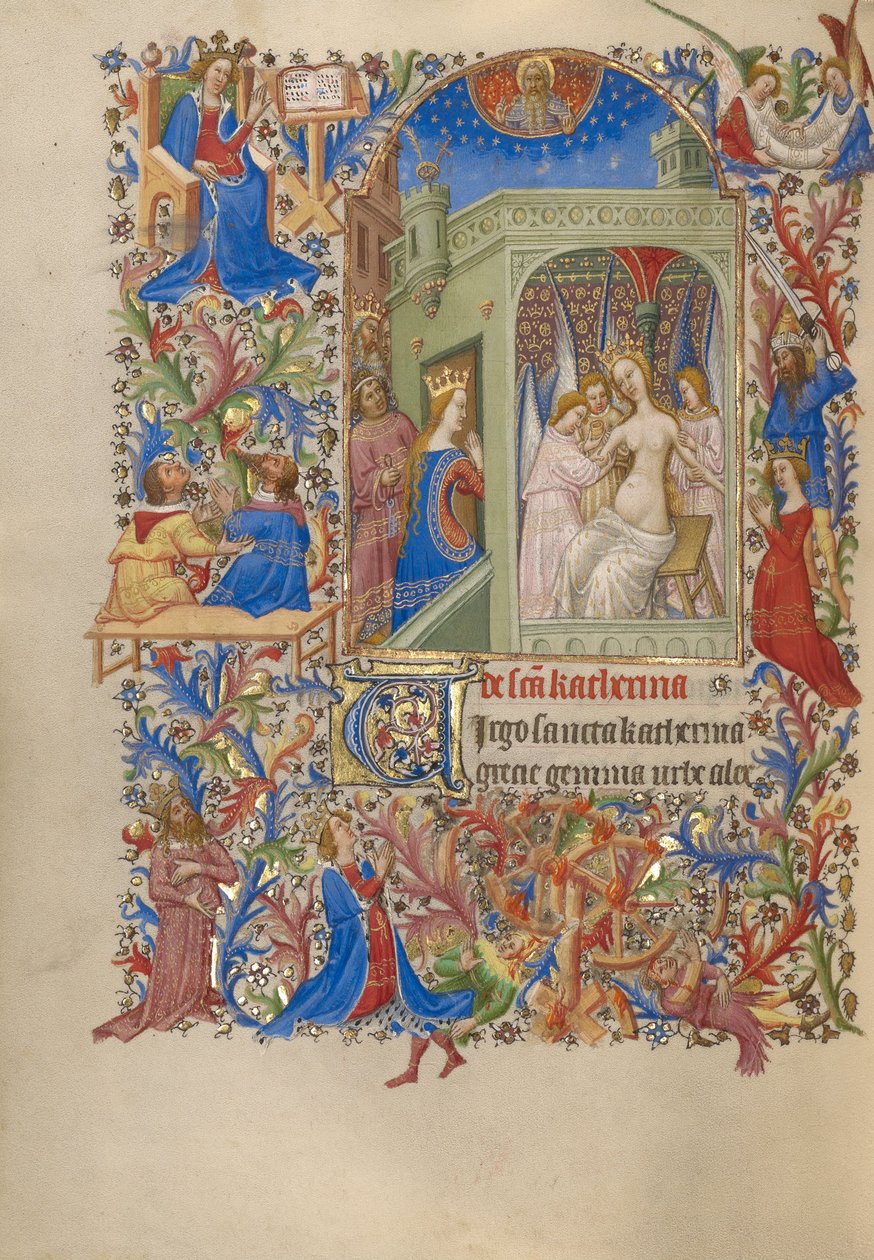 De sc̄a katherina
Virgo sancta katherina
grecie gemma urbe alex